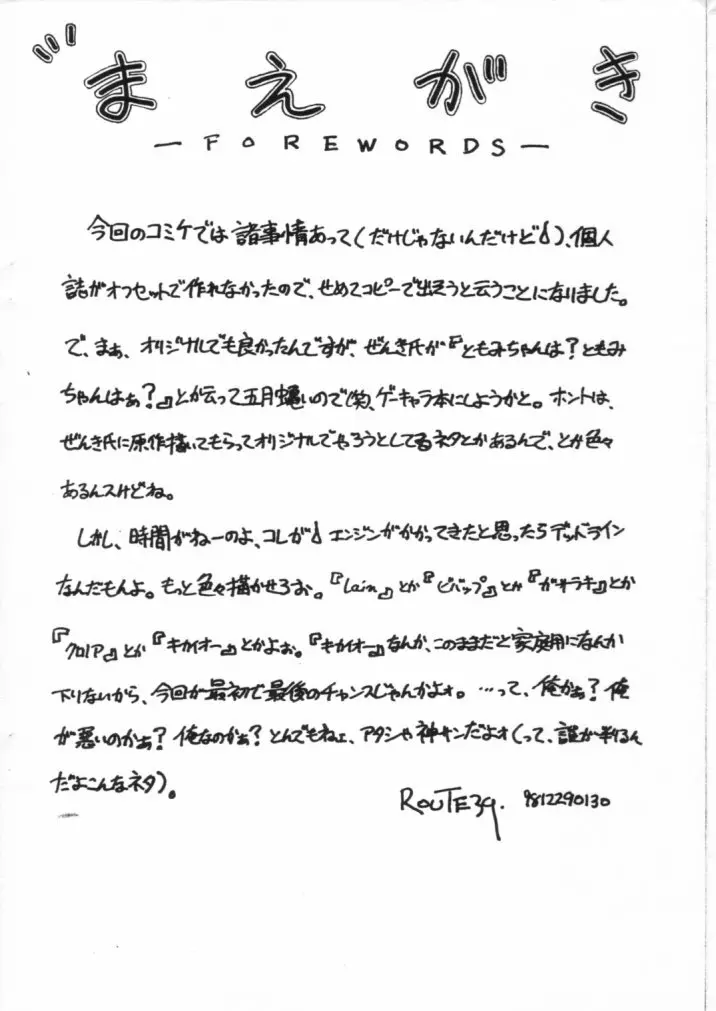 まえがき
—FOREWORDS—
今回のコミケでは諸事情あって(だけじゃないんだけど)、個人
誌がオフセットで作れなかったので、せめてコピーで出そうと云うことになりました。
で、まぁ、オリジナルでも良かったんですが、ぜんき氏が『ともみちゃんは?ともみ
ちゃんはぁ?』とか云って五月蝿いので(笑)、ゲーキャラ本にしようかと。ホントは、
ぜんき氏に原作描いてもらってオリジナルでやろうとしてるネタとかあるんで、とか色々
あるんスけどね。
しかし、時間がねーのよ、コレが エンジンがかかってきたと思ったらデッドライン
なんだもんよ。もっと色々描かせろぉ。『lain』とか『ビバップ』とか『ガサラキ』とか
『クロノア』とか『キカイオー』とかよぉ。『キカイオー』なんか、このままだと家庭用になんか
下りないから、今回が最初で最後のチャンスじゃんかよォ。…って、俺かぁ?俺
が悪いのかぁ?俺なのかぁ?とんでもねェ、アタシャ神サンだよォ(って、誰が判るん
だよこんなネタ)。
ROUTE39. 9812290130